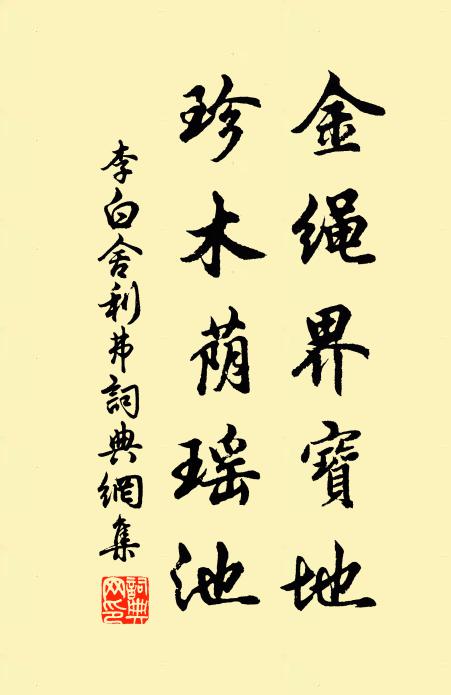 金绳界寶地
珍木荫瑶池
李白舍利弗詞典網集
詞典網印